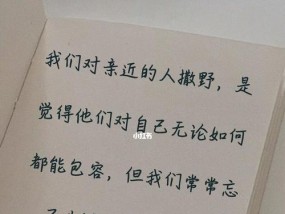 我们对亲近的人撒野，是
觉得他们对自己无论如何
小红书
都能包容，但我们常常忘